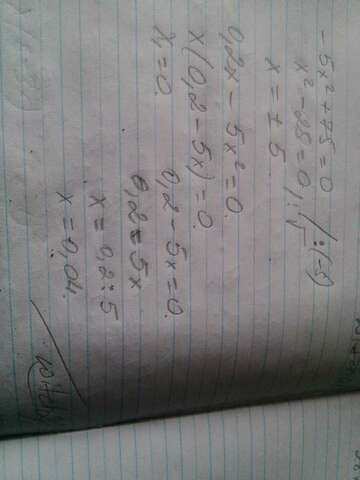 -5x²+75=0 /:(-5)
x²-25=0
x=±5
0,2x-5x²=0
x(0,2-5x)=0
x=0. 0,2-5x=0
0,2=5x
x=0,2:5
x=0,04.